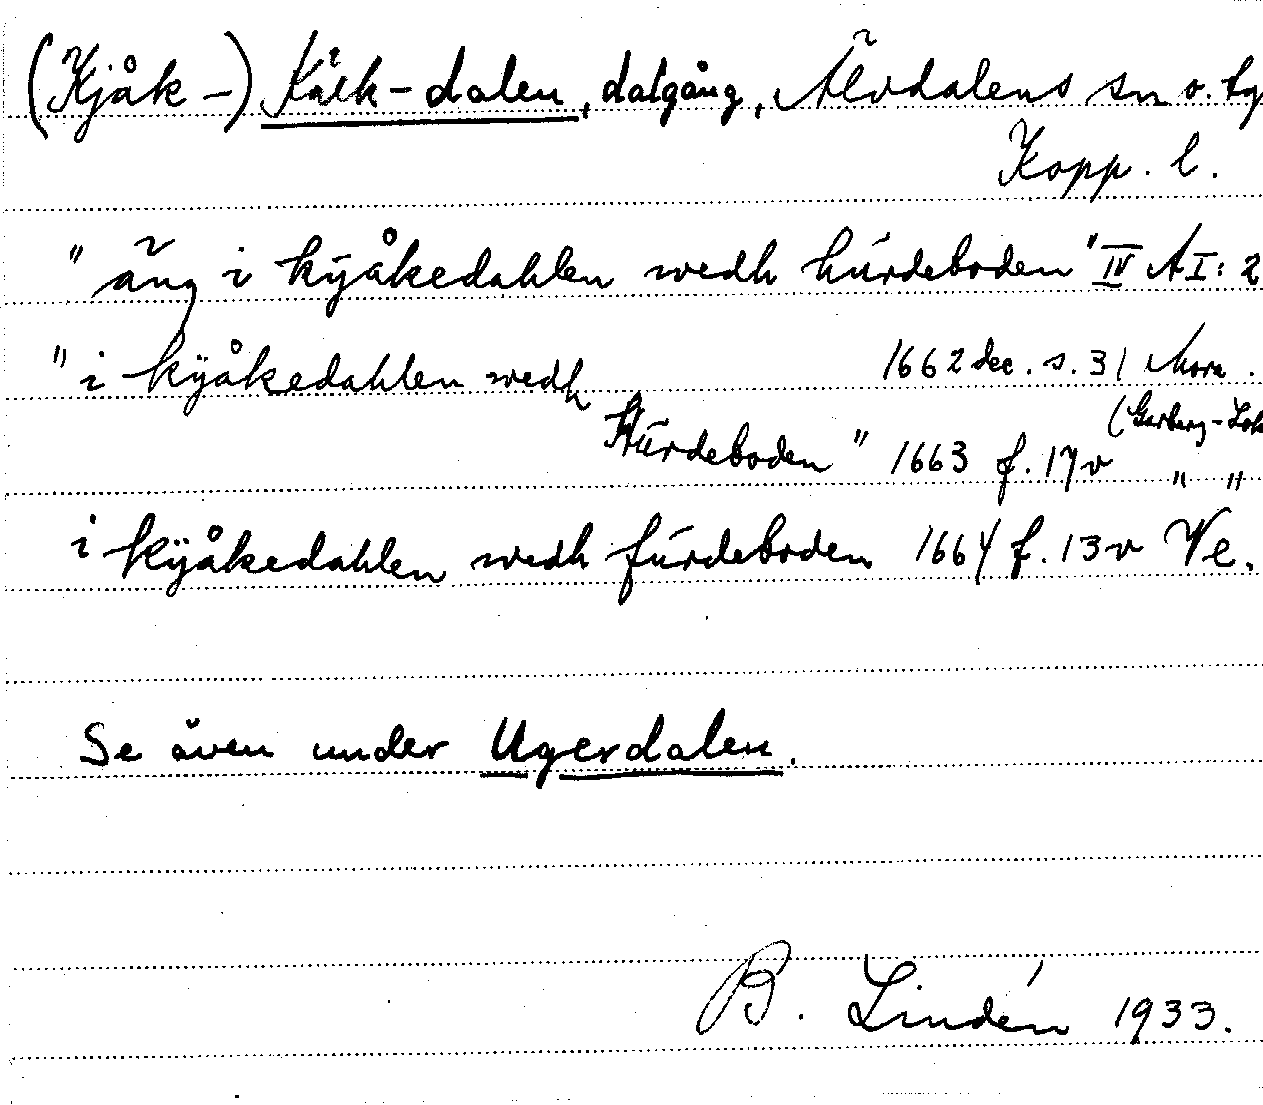 (Kjåk-) Kåik-dalen, dalgång, Älvdalens sn o. tg
Kopp. l.
" äng i kÿåkedahlen wedh húrdeboden " IV AI: 2
" i kÿåkedahlen wedh 1662 dec. s. 31 Mora.
Húrdeboden " 1663 f. 17v " "
i kÿåkedahlen wedh fúrdeboden 1664 f. 13v Ve.
Se även under Ugerdalen.
B. Lindén 1933.